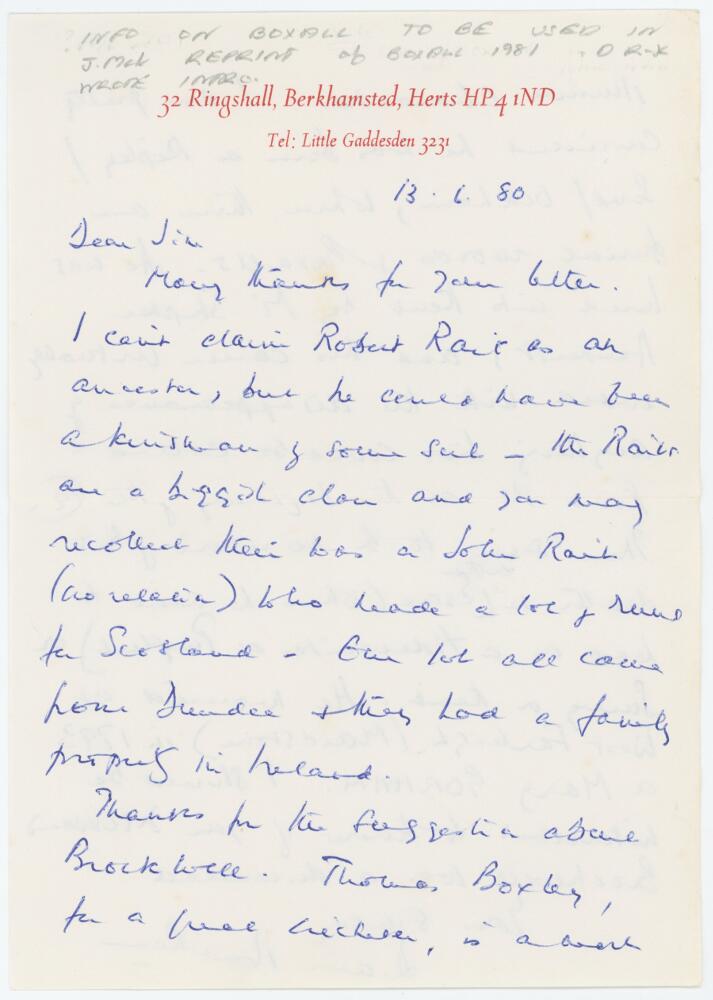 INFO ON BOXALL TO BE USED IN
J. McK REPRINT of BOXALL 1981. D R-K
WROTE INTRO.
32 Ringshall, Berkhamsted, Herts HP4 1ND
Tel: Little Gaddesden 3231
13. 6. 80
Dear Jim
Many thanks for your letter.
I can't claim Robert Rait as an
ancestor, but he could have been
a kinsman of some sort – the Raits
are a biggish clan and you may
recollect there was a John Rait
(no relation) who made a lot of runs
for Scotland – Our lot all came
from Dundee & they had a family
property in Ireland.
Thanks for the suggestion about
Brockwell. Thomas Boxley,
for a great cricketer, is a